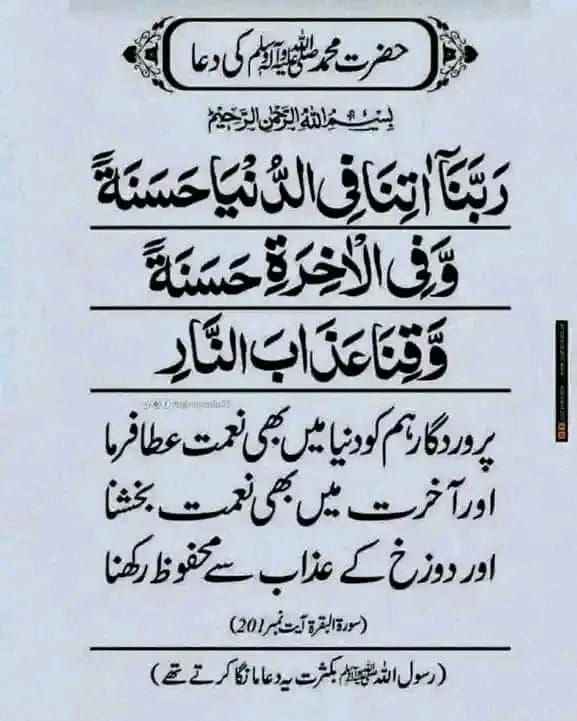 حضرت محمد ﷺ کی دعا
بِسْمِ اللهِ الرَّحْمٰنِ الرَّحِيْمِ
رَبَّنَآ اٰتِنَا فِی الدُّنْیَا حَسَنَةً
وَّ فِی الْاٰخِرَةِ حَسَنَةً
وَّ قِنَا عَذَابَ النَّارِ
پروردگار ہم کو دنیا میں بھی نعمت عطا فرما
اور آخرت میں بھی نعمت بخشنا
اور دوزخ کے عذاب سے محفوظ رکھنا
(سورۃ البقرۃ آیت نمبر 201)
(رسول اللہ ﷺ بکثرت یہ دعا مانگا کرتے تھے)